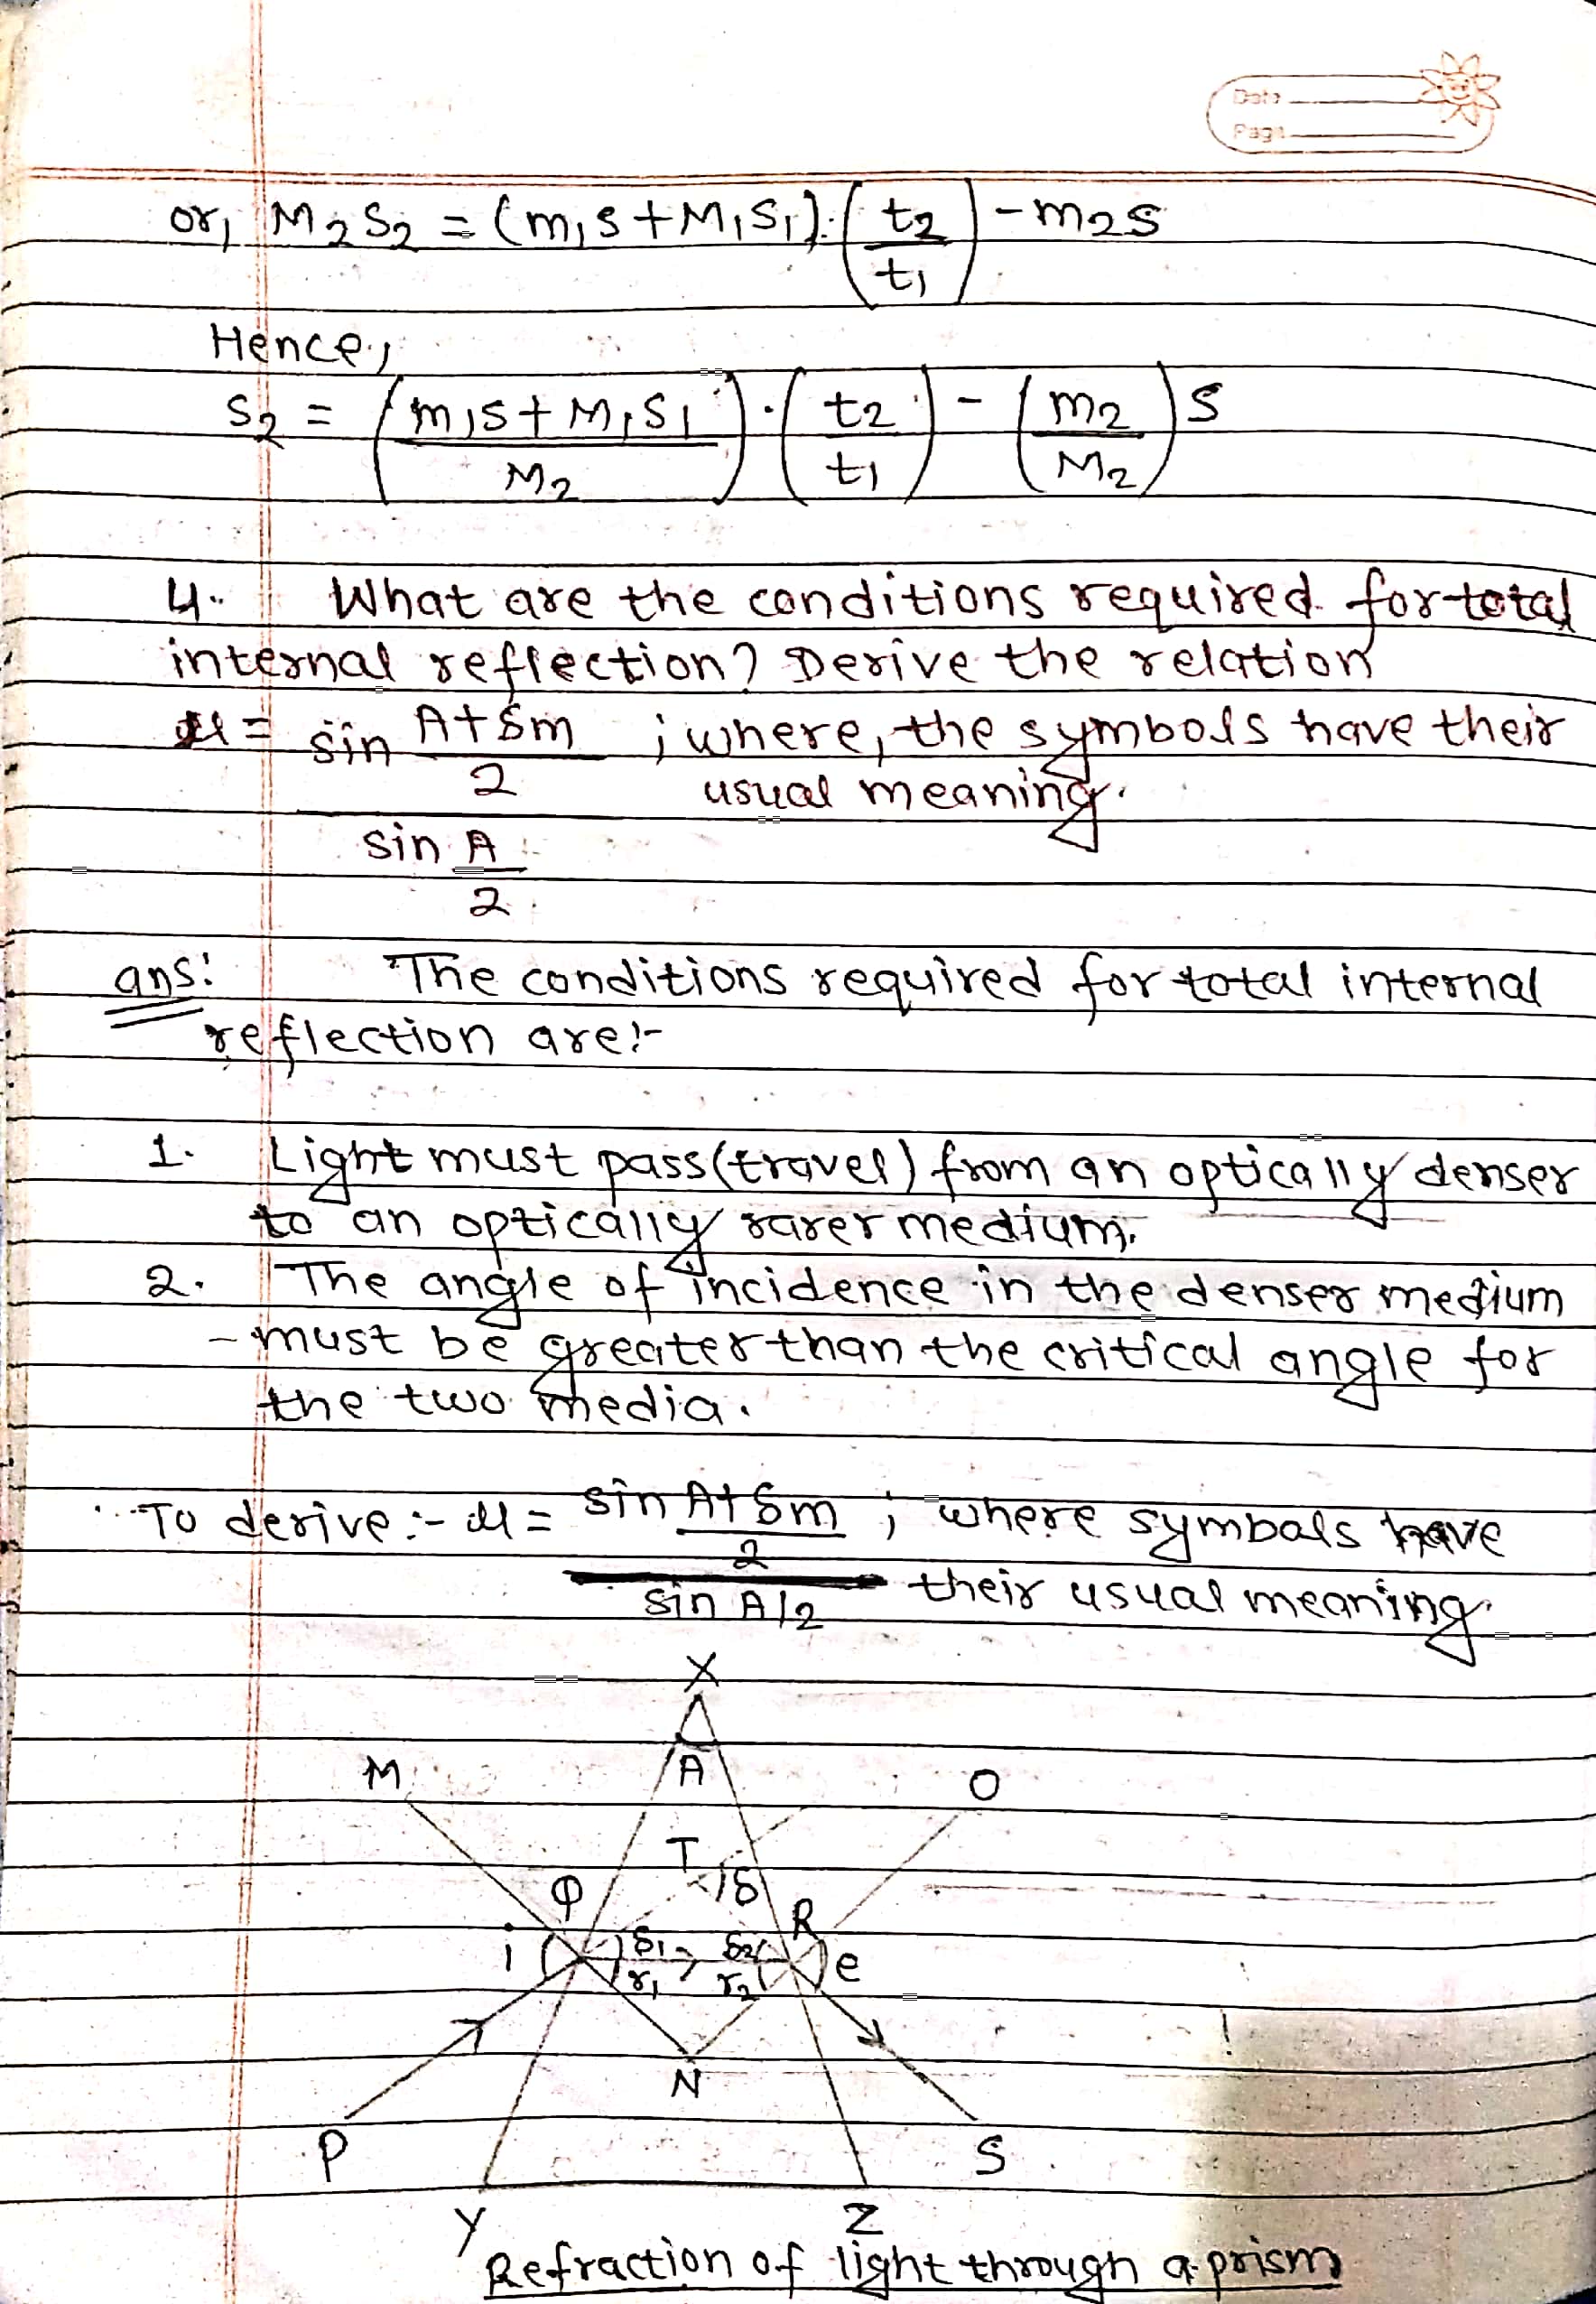 Date
Page
or, M2S2 = (m1s+M1S1).(t2/t1) - m2s
Hence,
S2 = (m1s+M1S1/M2).(t2/t1) - (m2/M2)s
4. What are the conditions required for total
internal reflection? Derive the relation
μ = sin A+δm/2 ; where, the symbols have their
usual meaning.
sin A/2
ans: The conditions required for total internal
reflection are:-
1. Light must pass(travel) from an optically denser
to an optically rarer medium.
2. The angle of incidence in the denser medium
- must be greater than the critical angle for
the two media.
To derive:- μ = sin A+δm/2 ; where symbols have
sin A/2 their usual meaning.
X
A
M O
T
δ
Q R
i δ1 δ2 e
r1 r2
N
P S
Y Z
Refraction of light through a prism